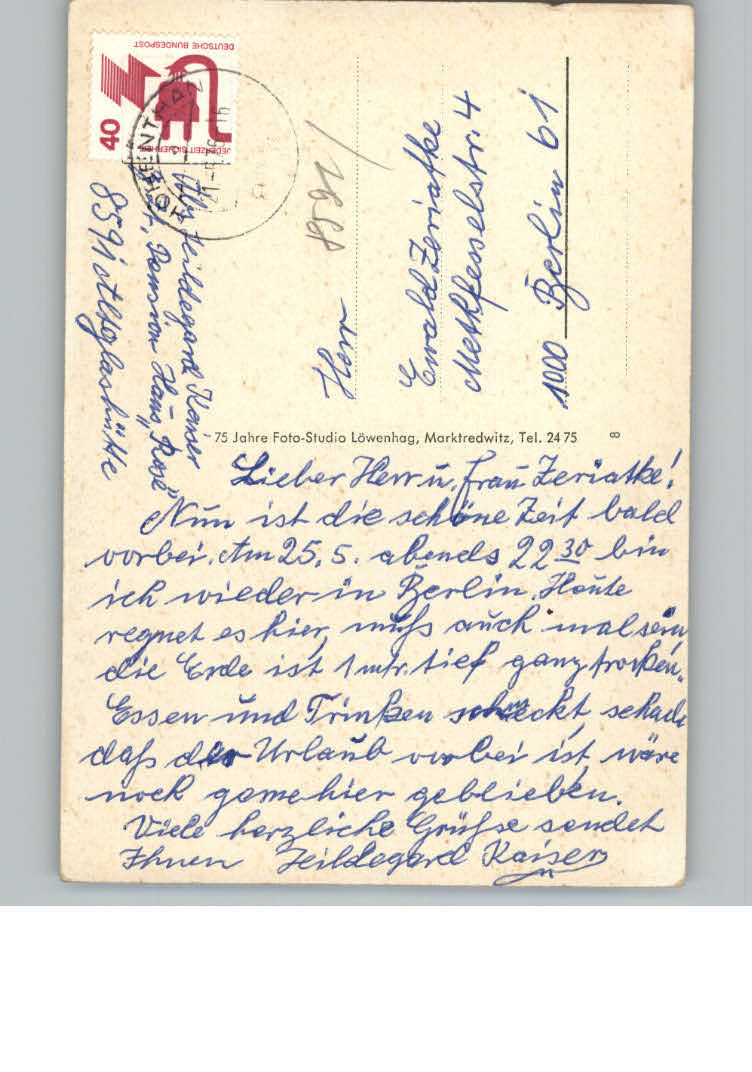 DEUTSCHE BUNDESPOST
JEDERZEIT SICHERHEIT
40
8591
Abs. Heildegard Kaiser
Pension Haus „Rose"
8591 Altglashütte
Herr
Ewald Zeriatke
Methfesselstr. 4
1000 Berlin 61
75 Jahre Foto-Studio Löwenhag, Marktredwitz, Tel. 24 75
8
Lieber Herr u. Frau Zeriatke!
Nun ist die schöne Zeit bald
vorbei. Am 25. 5. abends 22 30 bin
ich wieder in Berlin. Heute
regnet es hier, muß auch mal sein,
die Erde ist 1 mtr. tief ganz trocken.
Essen und Trinken schmeckt, schade
daß der Urlaub vorbei ist, wäre
noch gerne hier geblieben.
Viele herzliche Grüße sendet
Ihnen Heildegard Kaiser